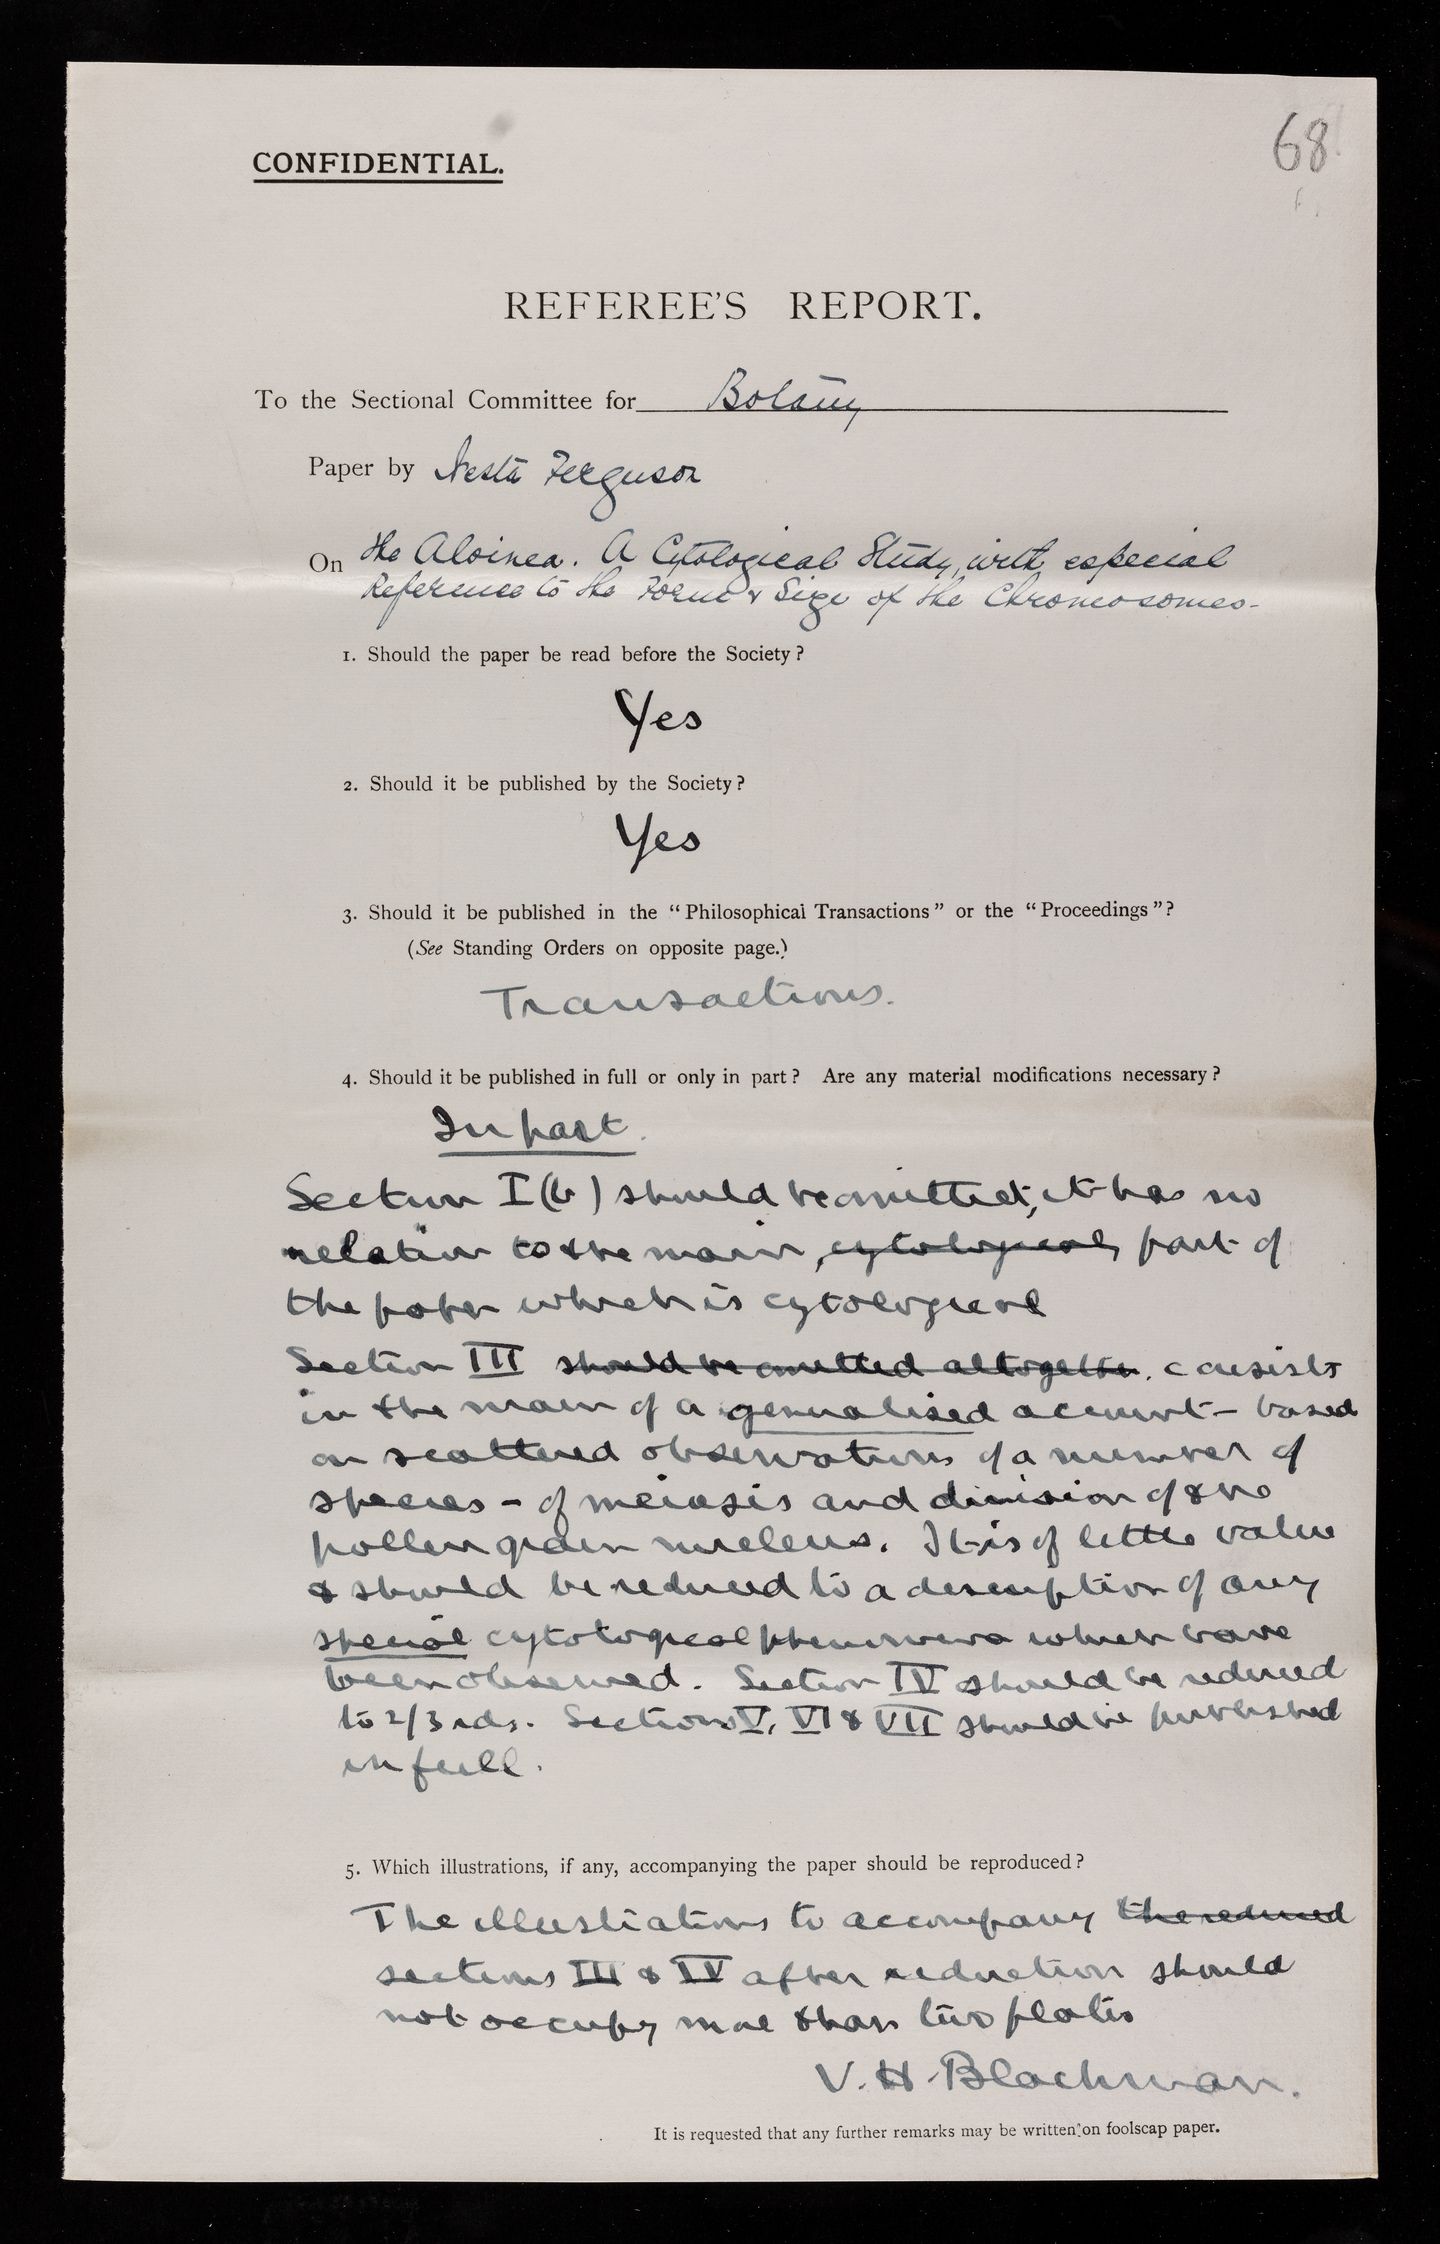 68
CONFIDENTIAL.
REFEREE'S REPORT.
To the Sectional Committee for Botany
Paper by Nesta Ferguson
On the Aloinea. A Cytological Study, with especial
Reference to the Form & Size of the Chromosomes.
1. Should the paper be read before the Society?
Yes
2. Should it be published by the Society?
Yes
3. Should it be published in the "Philosophical Transactions" or the "Proceedings"?
(See Standing Orders on opposite page.)
Transactions.
4. Should it be published in full or only in part? Are any material modifications necessary?
In part.
Section I (b) should be omitted; it has no
relation to the main, cytological, part of
the paper which is cytological
Section III should be omitted altogether. consists
in the main of a generalised account - based
on scattered observations of a number of
species - of meiosis and division of the
pollen grain nucleus. It is of little value
& should be reduced to a description of any
special cytological phenomena which have
been observed. Section IV should be reduced
to 2/3rds. Sections V, VI & VII should be published
in full.
5. Which illustrations, if any, accompanying the paper should be reproduced?
The illustrations to accompany the reduced
sections III & IV after reduction should
not occupy more than two plates
V. H. Blackman.
It is requested that any further remarks may be written on foolscap paper.